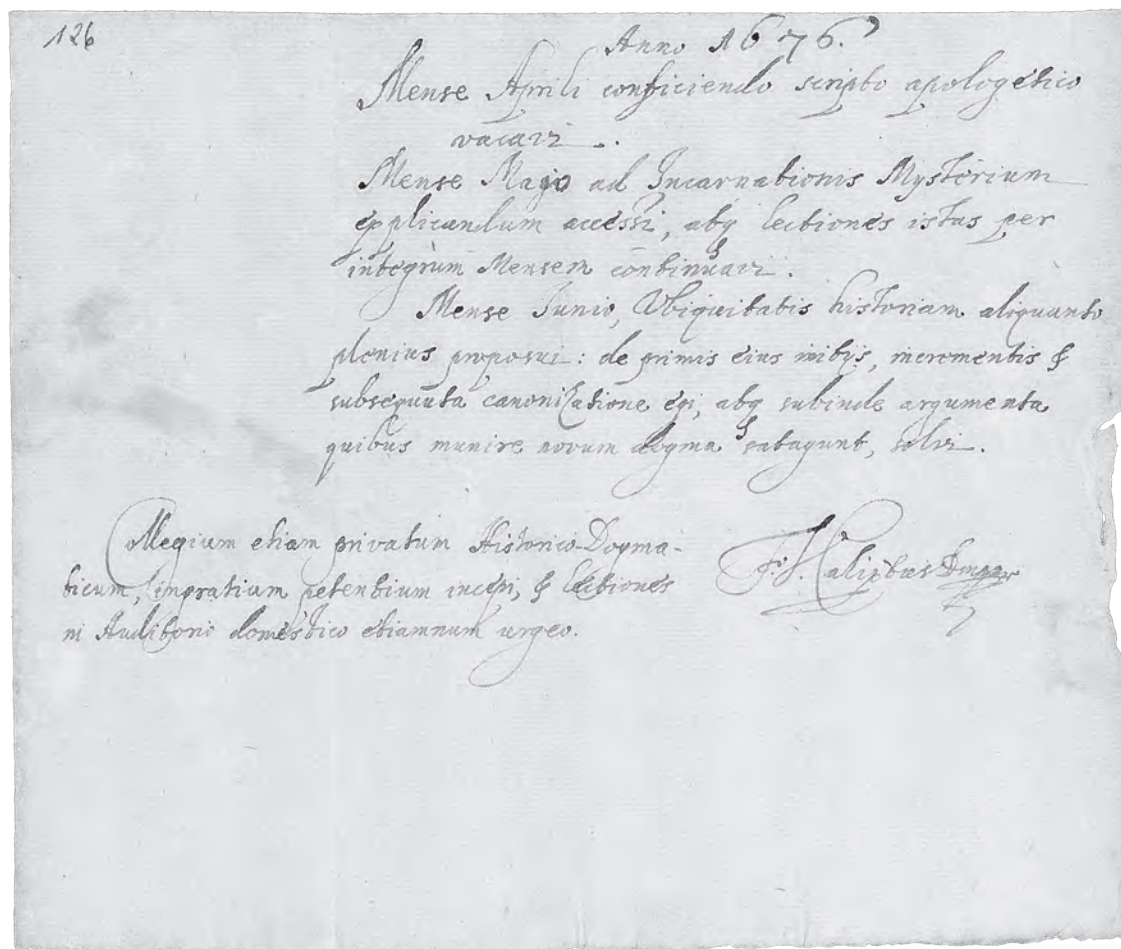 126
Anno 1676.
Mense Aprili conficiendo scripto apologetico
vacavi.
Mense Majo ad Incarnationis Mysterium
explicandum accessi, atq lectiones istas per
integrum Mensem continuavi.
Mense Junio, Ubiquitatis historiam aliquanto
plenius proposui: de primis eius initijs, incrementis &
subsequuta canonizatione egi, atq subinde argumenta
quibus munire novum dogma satagunt, solvi.
Collegium etiam privatum Historico-Dogma-
ticum, in gratiam petentium incepi, & lectiones
in Auditorio domestico etiamnum urgeo.
F. V. Calixtus